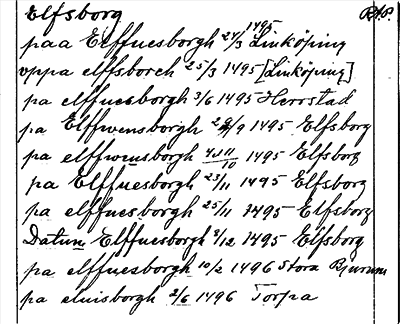 Elfsborg RAP.
paa Elffuesborgh 24/3 1495 Linköping
vppa elffsborch 25/3 1495 [Linköping]
pa elffuesborgh 3/6 1495 Herrstad
pa Elffwensborgh /9 1495 Elfsborg
pa elffwinsborgh 1495 Elfsborg
pa Elffuesborgh 23/11 1495 Elfsborg
pa elffuesborgh 25/11 1495 Elfsborg
Datum Elffuesborgh 8/12 1495 Elfsborg
pa elffuesborgh 10/2 1496 Stora Bjurum
pa eluisborgh 2/6 1496 Torpa